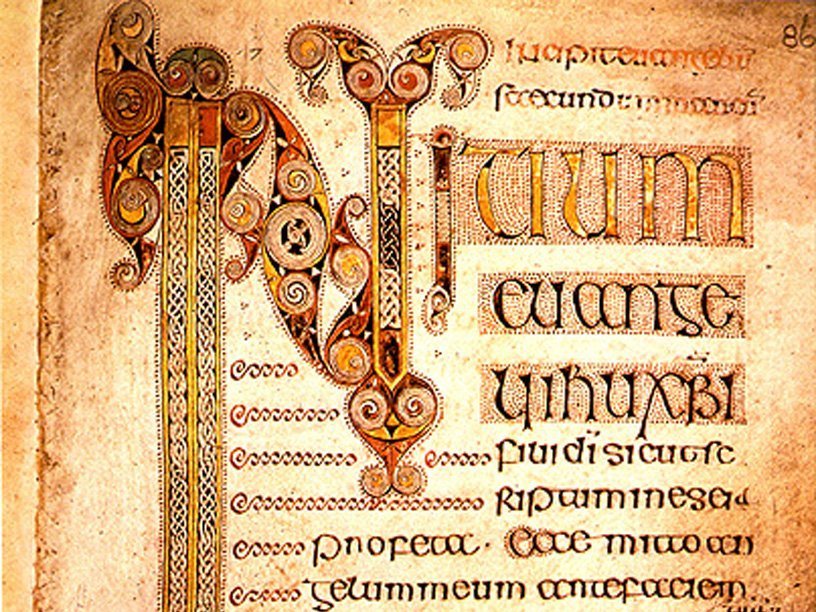 86
Incipit euangeliu
secundum
INITIUM
euange
lii ihu xp̄i
fili dī sicut sc
Riptum in eseia
profeta · Ecce mitto an
gelum meum ante faciem